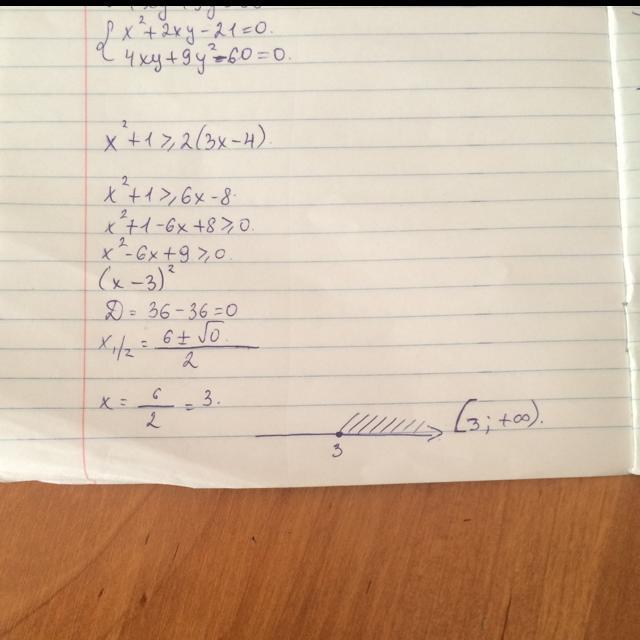 { x² + 2xy - 21 = 0.
4xy + 9y² - 60 = 0.
x² + 1 ⩾ 2(3x - 4)
x² + 1 ⩾ 6x - 8.
x² + 1 - 6x + 8 ⩾ 0.
x² - 6x + 9 ⩾ 0.
(x - 3)²
D = 36 - 36 = 0
x₁/₂ = (6 ± √0)/2
x = 6/2 = 3.
[3; +∞).
3